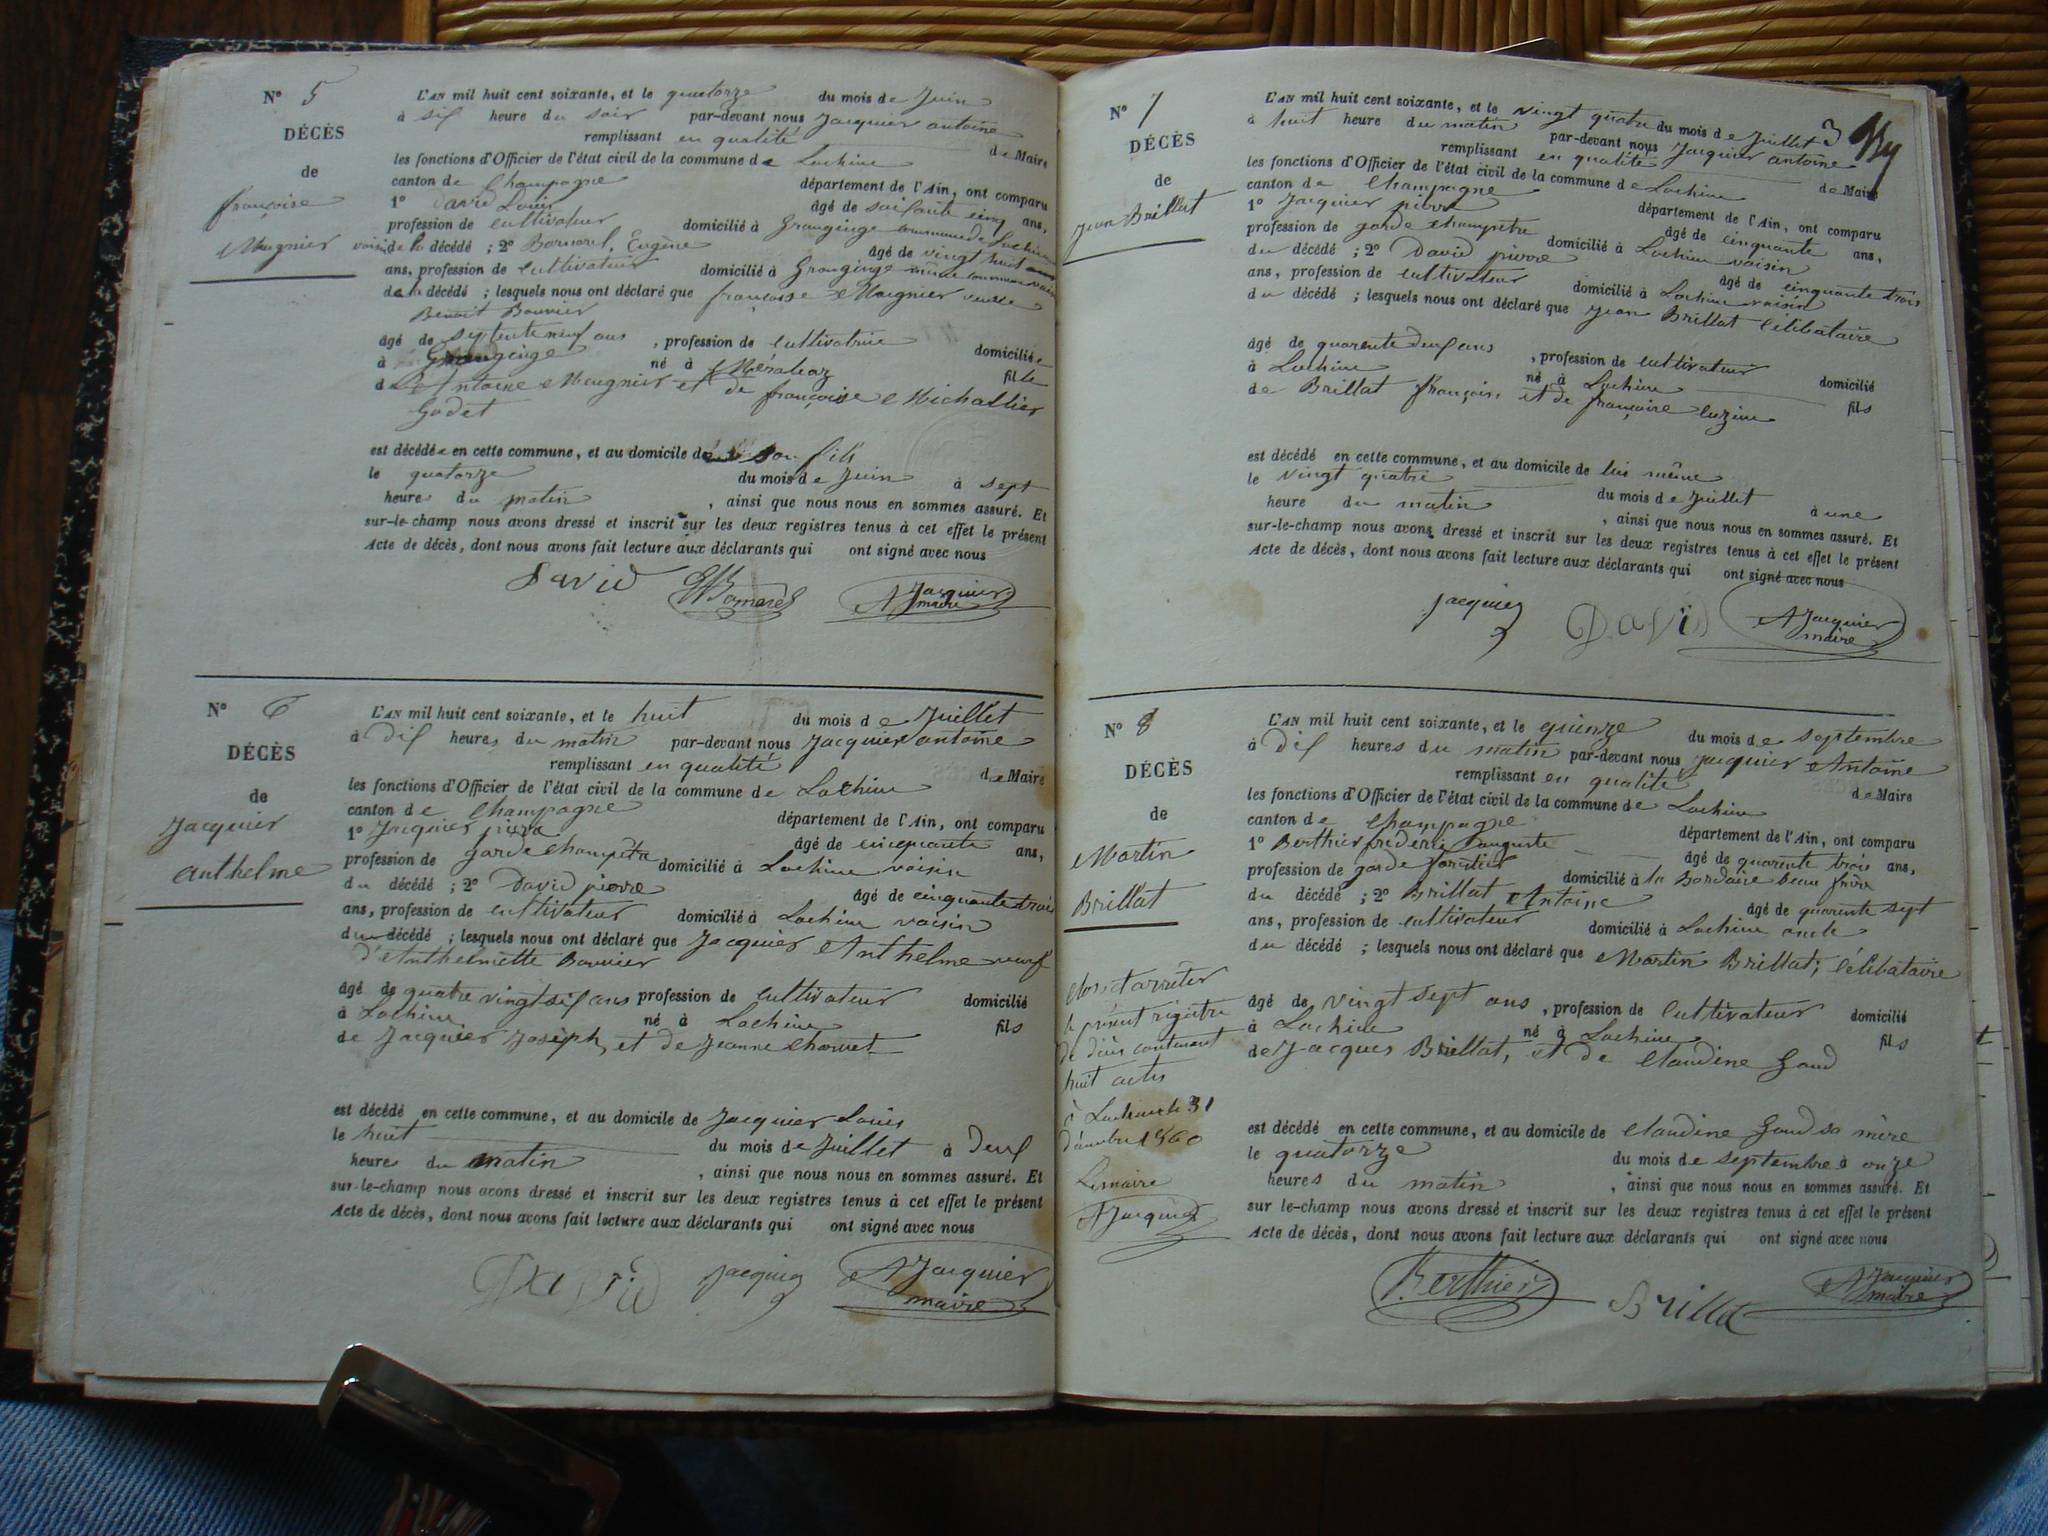 N° 5
DÉCÈS
de
françoise
Mugnier
L'AN mil huit cent soixante, et le quatorze du mois de Juin
à six heure du soir par-devant nous Jacquier antoine
remplissant en qualité de Maire
les fonctions d'Officier de l'état civil de la commune de Lochieu
canton de Champagne département de l'Ain, ont comparu
1° David Louis âgé de soixante cinq ans,
profession de cultivateur domicilié à Granginge commune de Lochieu
voisin de la décédé ; 2° Bornarel, Eugène âgé de vingt huit
ans, profession de cultivateur domicilié à Granginge même commune voisin
de la décédé ; lesquels nous ont déclaré que françoise Mugnier veuve
Benoit Bouvier
âgé de septente neuf ans , profession de cultivatrice domiciliée
à Granginge né à Méraléaz fille
de Antoine Mugnier et de françoise Michallier
Godet
est décédée en cette commune, et au domicile de son fils
le quatorze du mois de Juin à sept
heures du matin , ainsi que nous nous en sommes assuré. Et
sur-le-champ nous avons dressé et inscrit sur les deux registres tenus à cet effet le présent
Acte de décès, dont nous avons fait lecture aux déclarants qui ont signé avec nous
David EBornarel AJacquier
maire
N° 6
DÉCÈS
de
Jacquier
Anthelme
L'AN mil huit cent soixante, et le huit du mois de Juillet
à dix heures du matin par-devant nous Jacquier antoine
remplissant en qualité de Maire
les fonctions d'Officier de l'état civil de la commune de Lochieu
canton de Champagne département de l'Ain, ont comparu
1° Jacquier pierre âgé de cinquante ans,
profession de garde champêtre domicilié à Lochieu voisin
du décédé ; 2° David pierre âgé de cinquante trois
ans, profession de cultivateur domicilié à Lochieu voisin
du décédé ; lesquels nous ont déclaré que Jacquier Anthelme veuf
d'Anthelmette Bouvier
âgé de quatre vingt six ans profession de cultivateur domicilié
à Lochieu né à Lochieu fils
de Jacquier Joseph, et de Jeanne Charvet
est décédé en cette commune, et au domicile de Jacquier Louis
le huit du mois de Juillet à deux
heures du matin , ainsi que nous nous en sommes assuré. Et
sur-le-champ nous avons dressé et inscrit sur les deux registres tenus à cet effet le présent
Acte de décès, dont nous avons fait lecture aux déclarants qui ont signé avec nous
David Jacquier AJacquier
maire
3
N° 7
DÉCÈS
de
Jean Brillat
L'AN mil huit cent soixante, et le vingt quatre du mois de Juillet
à huit heure du matin par-devant nous Jacquier antoine
remplissant en qualité de Maire
les fonctions d'Officier de l'état civil de la commune de Lochieu
canton de Champagne département de l'Ain, ont comparu
1° Jacquier pierre âgé de cinquante ans,
profession de garde champêtre domicilié à Lochieu voisin
du décédé ; 2° David pierre âgé de cinquante trois
ans, profession de cultivateur domicilié à Lochieu voisin
du décédé ; lesquels nous ont déclaré que Jean Brillat célibataire
âgé de quarente deux ans , profession de cultivateur domicilié
à Lochieu né à Lochieu fils
de Brillat françois et de françoise cuzin
est décédé en cette commune, et au domicile de lui même
le vingt quatre du mois de Juillet à une
heure du matin , ainsi que nous nous en sommes assuré. Et
sur-le-champ nous avons dressé et inscrit sur les deux registres tenus à cet effet le présent
Acte de décès, dont nous avons fait lecture aux déclarants qui ont signé avec nous
Jacquier David AJacquier
maire
N° 8
DÉCÈS
de
Martin
Brillat
L'AN mil huit cent soixante, et le quinze du mois de septembre
à dix heures du matin par-devant nous Jacquier Antoine
remplissant en qualité de Maire
les fonctions d'Officier de l'état civil de la commune de Lochieu
canton de Champagne département de l'Ain, ont comparu
1° Berthier frédéric auguste âgé de quarente trois ans,
profession de garde forêtier domicilié à la Bordaire beau frère
du décédé ; 2° Brillat Antoine âgé de quarente sept
ans, profession de cultivateur domicilié à Lochieu oncle
du décédé ; lesquels nous ont déclaré que Martin Brillat, célibataire
âgé de vingt sept ans , profession de cultivateur domicilié
à Lochieu né à Lochieu fils
de Jacques Brillat, et de Claudine Gaud
est décédé en cette commune, et au domicile de Claudine Gaud sa mère
le quatorze du mois de septembre à onze
heures du matin , ainsi que nous nous en sommes assuré. Et
sur le-champ nous avons dressé et inscrit sur les deux registres tenus à cet effet le présent
Acte de décès, dont nous avons fait lecture aux déclarants qui ont signé avec nous
Berthier Brillat AJacquier
maire
clos et arrêter
le présent régistre
de décès contenant
huit actes
à Lochieu le 31
décembre 1860
Le maire
AJacquier